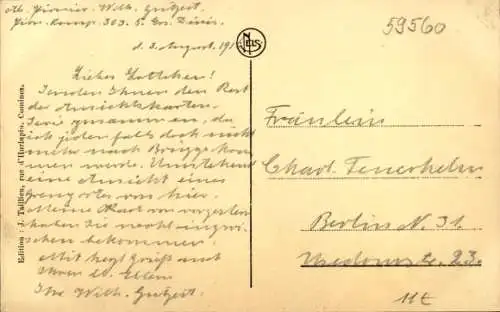 Abs. Pionier Wilh. Gutzeit
Pion. Komp. 303. 5. Ers. Divis.
d. 3. August. 191
Liebes Lottchen!
Senden Ihnen den Rest
der Ansichtskarten-
Serie zusammen, da
ich jedenfalls doch nicht
mehr nach Brügge kom-
men werde. Umstehend
eine Ansicht eines
Grenzortes von hier.
Meine Karte von vorgestern
haben Sie wohl inzwi-
schen bekommen.
Mit herzl. Gruß auch
Ihren lb. Eltern
Ihr Wilh. Gutzeit.
Edition : J. Tallieu, rue d'Hurlupin, Comines.
NELS
59560
Fräulein
Charl.
Berlin N. 31.
Usedomstr. 23.
11€